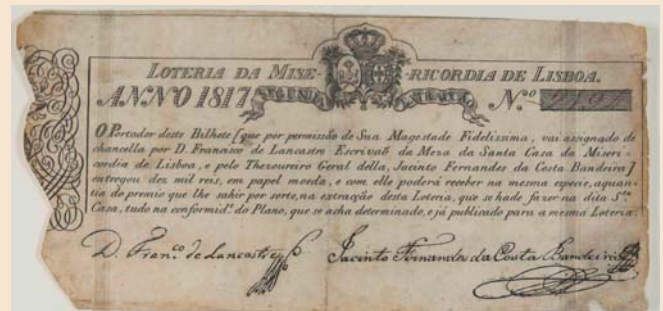 LOTERIA DA MISE- -RICORDIA DE LISBOA.
ANNO 1817 SEGUNDA EXTRAÇÃO N.º
O Portador deste Bilhete [que por permissão de Sua Magestade Fidelissima, vai assignado de
chancella por D. Francisco de Lancastre Escrivaõ da Meza da Santa Casa da Miseri-
cordia de Lisboa, e pelo Thezoureiro Geral della, Jacinto Fernandes da Costa Bandeira]
entregou dez mil reis, em papel moeda, e com elle poderá receber na mesma especie, aquan-
tia do premio que lhe sahir por sorte, na extracção desta Loteria, que se hade fazer na dita S.ta
Casa, tudo na conformid.e do Plano, que se acha determinado, e já publicado para a mesma Loteria.
D. Fran.co de Lancastre Jacinto Fernandes da Costa Bandeira